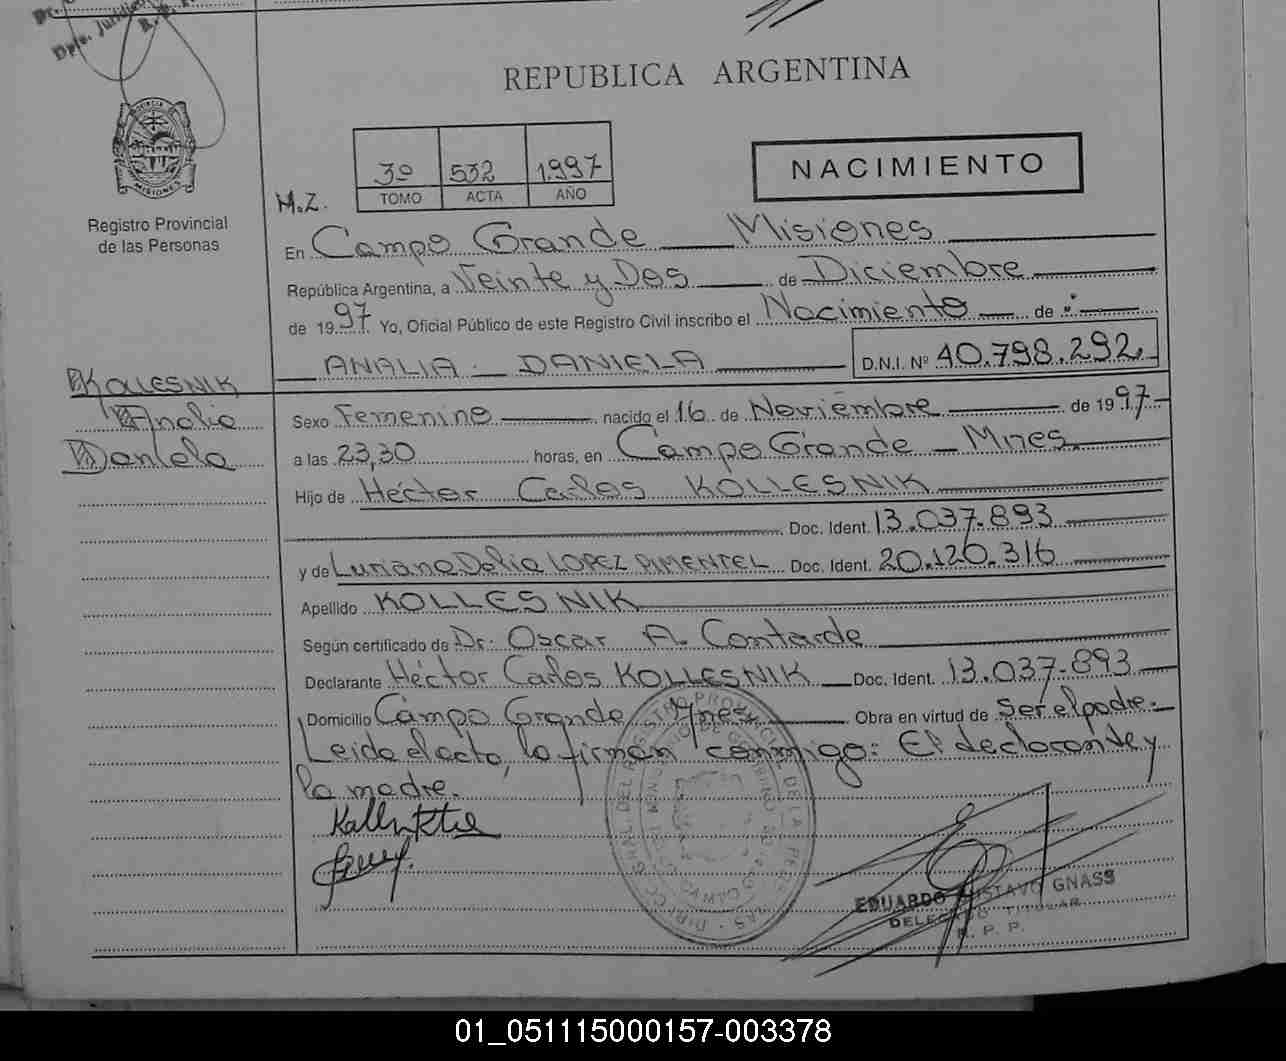 Dpto. Jurídico
REPUBLICA ARGENTINA
3º 532 1997
TOMO ACTA AÑO
NACIMIENTO
M.Z.
Registro Provincial
de las Personas
En Campo Grande Misiones
República Argentina, a Veinte y Dos de Diciembre
de 1997. Yo, Oficial Público de este Registro Civil inscribo el Nacimiento de
ANALIA DANIELA D.N.I. Nº 40.798.292
KOLLESNIK
Analia
Daniela
Sexo Femenino nacido el 16 de Noviembre de 1997
a las 23,30 horas, en Campo Grande - Mnes.
Hijo de Héctor Carlos KOLLESNIK
Doc. Ident. 13.037.893
y de Luriana Delia LOPEZ PIMENTEL Doc. Ident. 20.120.316
Apellido KOLLESNIK
Según certificado de Dr. Oscar A. Contarde
Declarante Héctor Carlos KOLLESNIK Doc. Ident. 13.037.893
Domicilio Campo Grande Mnes. Obra en virtud de Ser el padre.
Leido el acto, lo firman conmigo: El declarante y
la madre.
EDUARDO GUSTAVO GNASS
DELEGADO TITULAR
R. P. P.
01_051115000157-003378